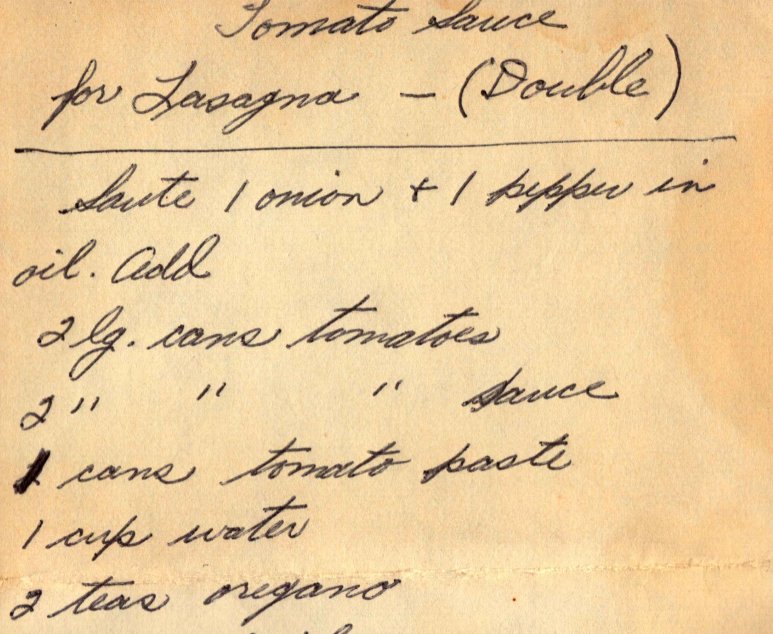 Tomato Sauce
for Lasagna - (Double)
Saute 1 onion + 1 pepper in
oil. Add
2 lg. cans tomatoes
2 " " " sauce
cans tomato paste
1 cup water
2 teas oregano